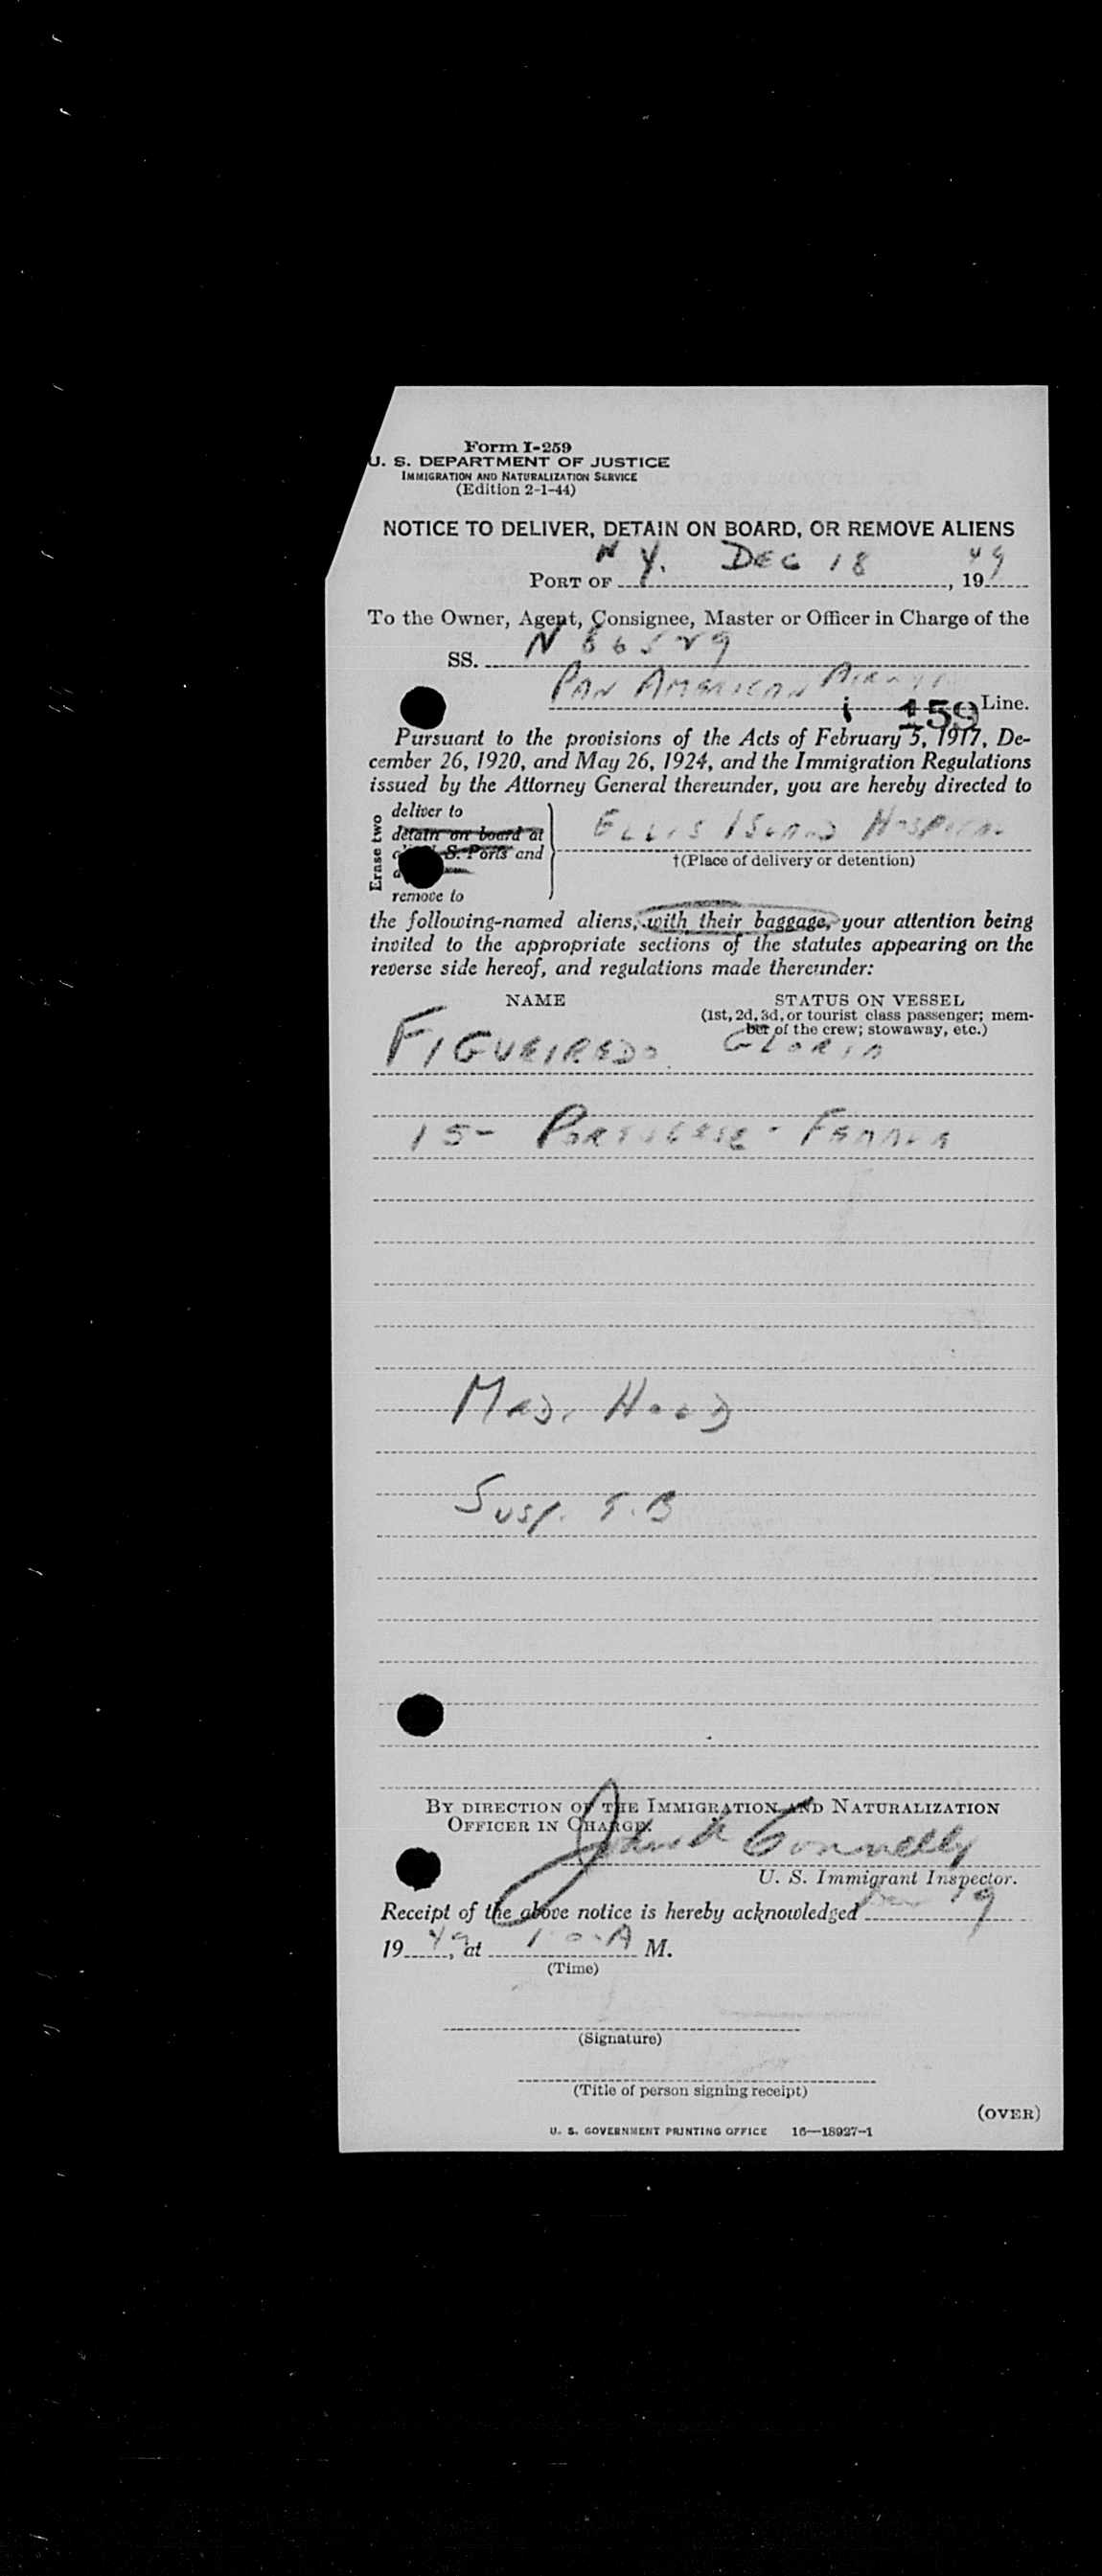 Form I-259
U. S. DEPARTMENT OF JUSTICE
IMMIGRATION AND NATURALIZATION SERVICE
(Edition 2-1-44)
NOTICE TO DELIVER, DETAIN ON BOARD, OR REMOVE ALIENS
PORT OF N Y. DEC 18, 1949
To the Owner, Agent, Consignee, Master or Officer in Charge of the
SS. N 86529
PAN AMERICAN Line.
159
Pursuant to the provisions of the Acts of February 5, 1917, De-
cember 26, 1920, and May 26, 1924, and the Immigration Regulations
issued by the Attorney General thereunder, you are hereby directed to
Erase two
deliver to
detain on board at
S. Ports and
remove to
ELLIS ISLAND HOSPITAL
†(Place of delivery or detention)
the following-named aliens, with their baggage, your attention being
invited to the appropriate sections of the statutes appearing on the
reverse side hereof, and regulations made thereunder:
NAME STATUS ON VESSEL
(1st, 2d, 3d, or tourist class passenger; mem-
ber of the crew; stowaway, etc.)
FIGUEIREDO GLORIA
15- PORTUGESE - FEMALE
MED. HOLD
SUSP. T.B
BY DIRECTION OF THE IMMIGRATION AND NATURALIZATION
OFFICER IN CHARGE:
Connelly
U. S. Immigrant Inspector.
Receipt of the above notice is hereby acknowledged 19
1949, at 10-A M.
(Time)
(Signature)
(Title of person signing receipt)
(OVER)
U. S. GOVERNMENT PRINTING OFFICE 16—18927-1